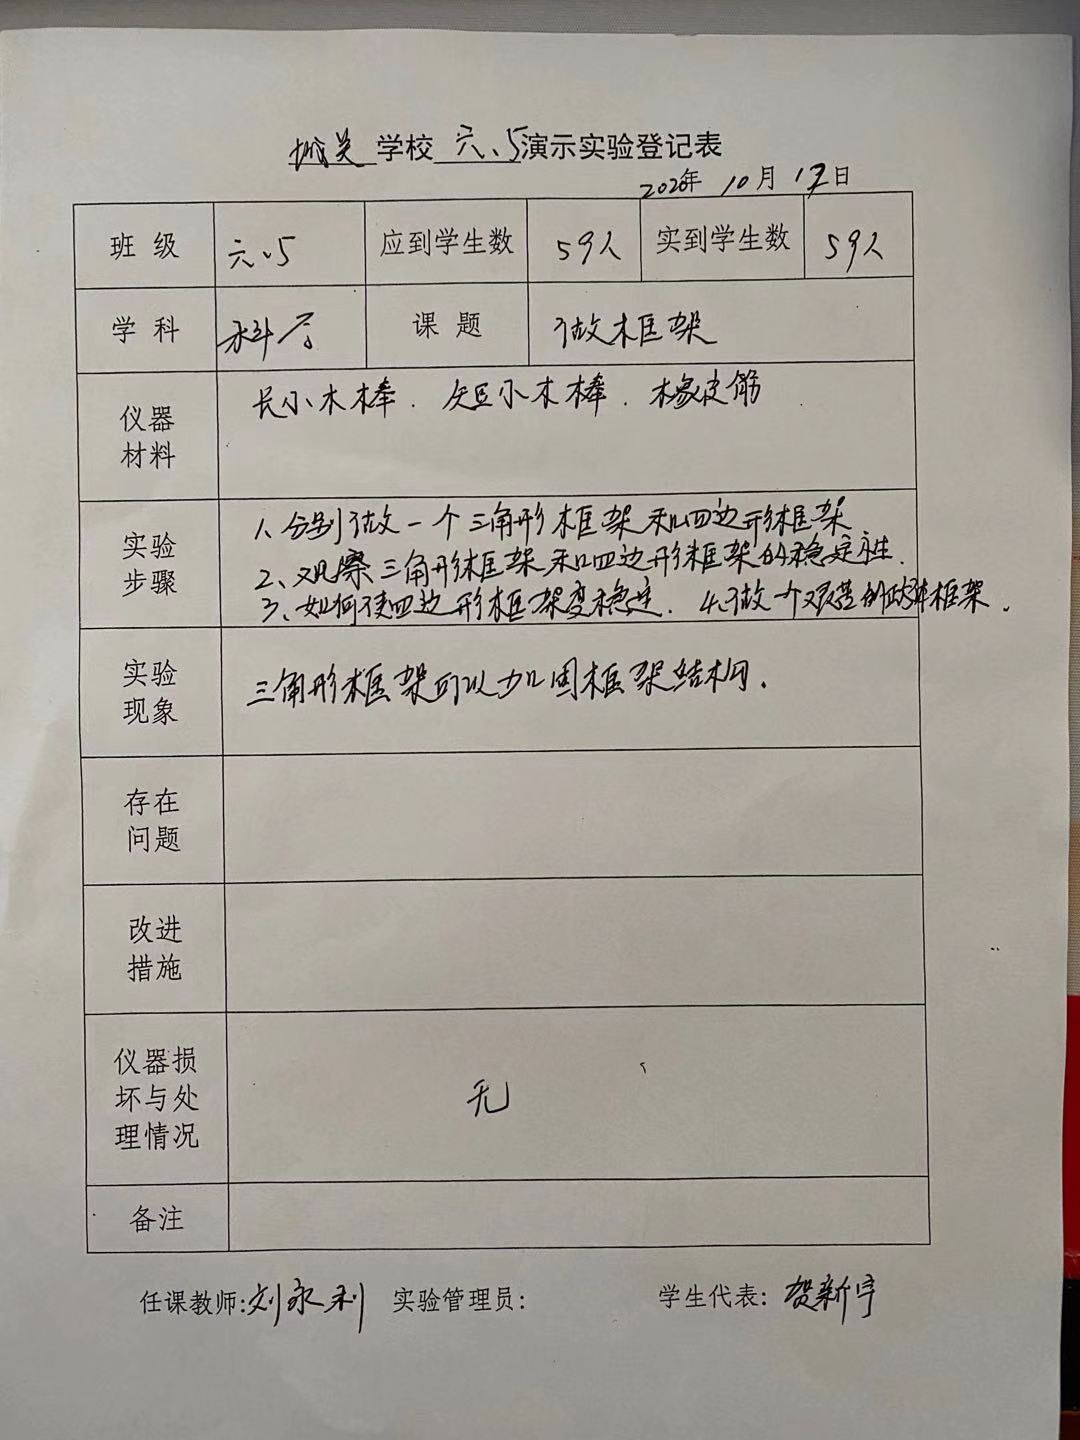 城关学校六、5演示实验登记表
2020年10月17日
班级 六、5 应到学生数 59人 实到学生数 59人
学科 科学 课题 做框架
仪器材料 长小木棒. 短小木棒. 橡皮筋
实验步骤 1、分别做一个三角形框架和四边形框架
2、观察三角形框架和四边形框架的稳定性.
3、如何使四边形框架变稳定. 4、做一个 的 框架.
实验现象 三角形框架可以加固框架结构.
存在问题
改进措施
仪器损坏与处理情况 无
备注
任课教师:刘永利 实验管理员: 学生代表: 贺新宇